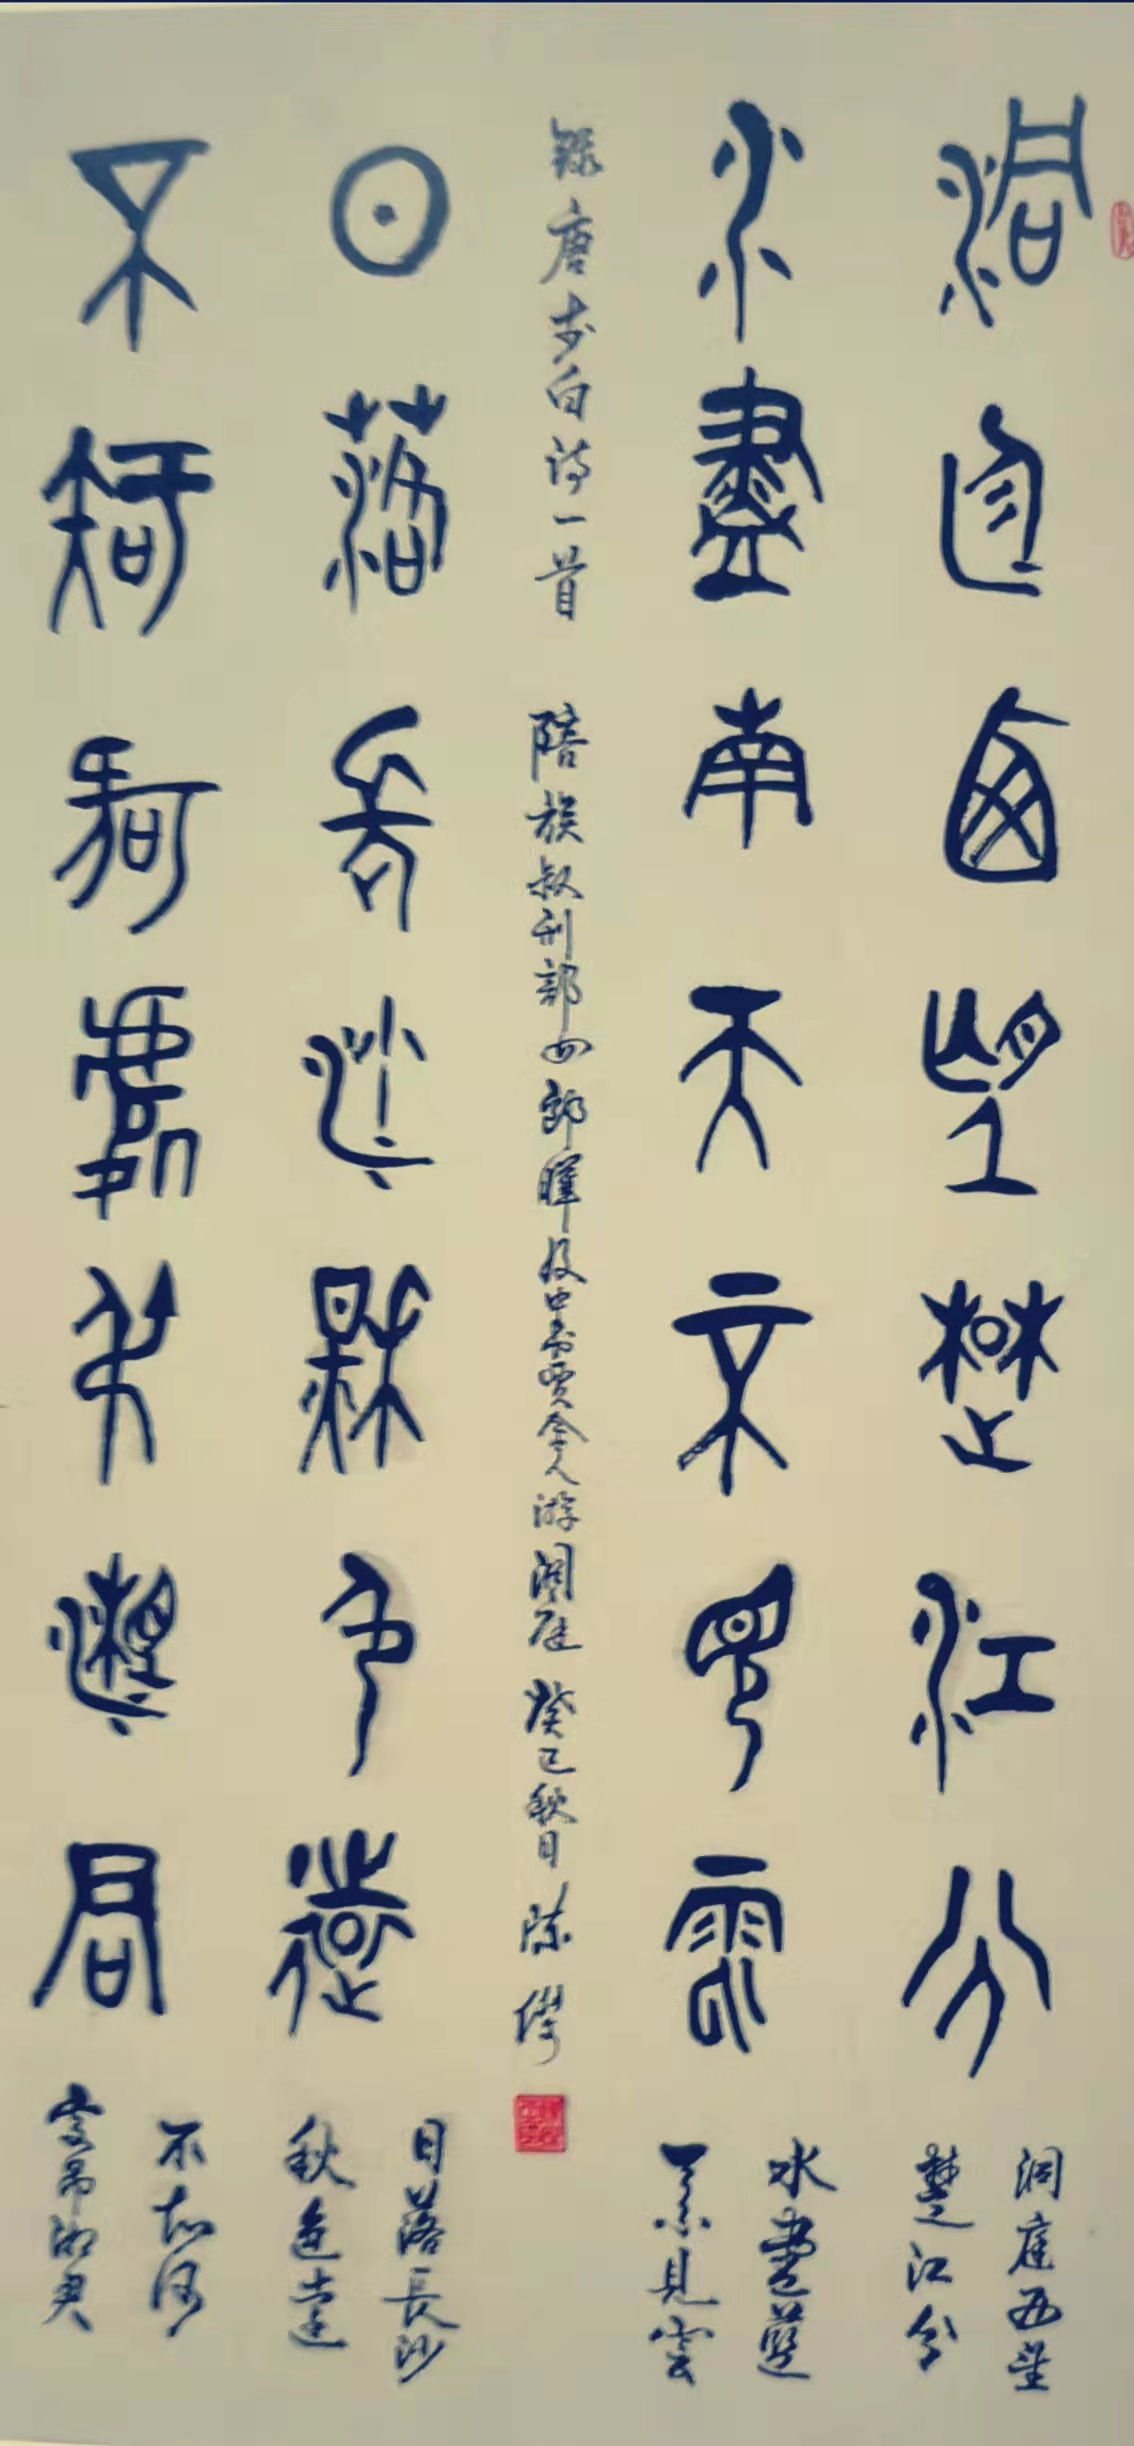 洞庭西望楚江分
洞庭西望
楚江分
水盡南天不見雲
水盡
天不見雲
錄唐李白詩一首 陪族叔刑部四郎曄及中書賈舍人游洞庭 癸巳秋日 陳
日落長沙秋色遠
日落長沙
秋色遠
不知何處弔湘君
不知何
處弔湘君